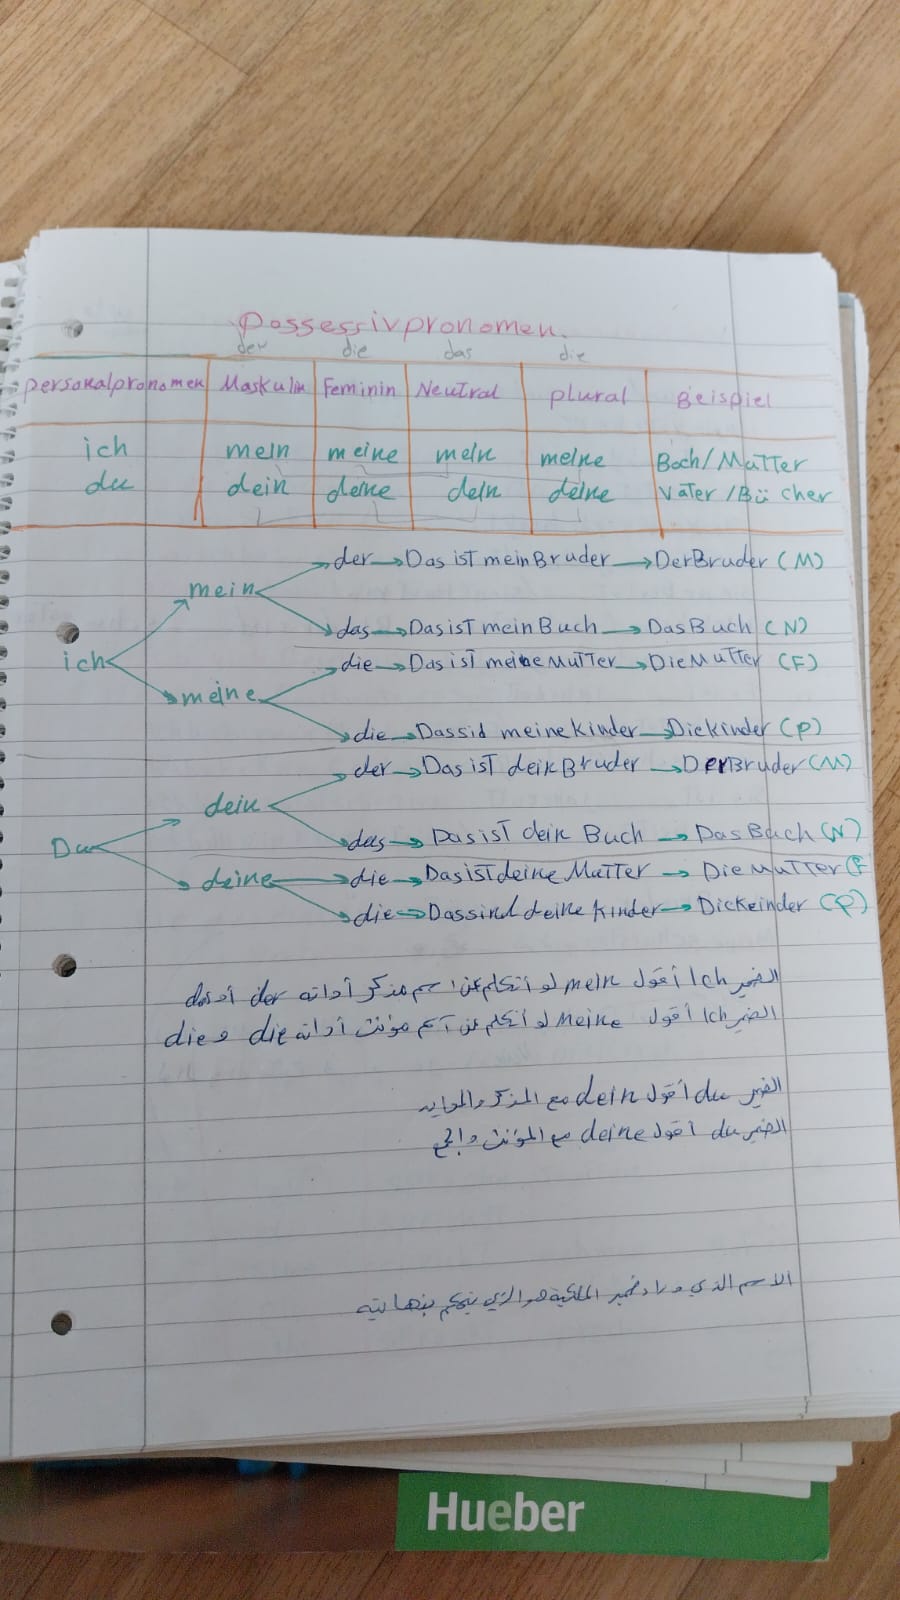 Possessivpronomen.
der die das die
personalpronomen Maskulin Feminin Neutral plural Beispiel
ich mein meine mein meine Boch/Mutter
du dein deine dein deine Vater/Bücher
der → Das ist mein Bruder → Der Bruder (M)
mein
das → Das ist mein Buch → Das Buch (N)
ich
die → Das ist meine Mutter → Die Mutter (F)
meine
die → Das sid meine kinder → Die kinder (P)
der → Das ist dein Bruder → Der Bruder (M)
dein
das → Das ist dein Buch → Das Buch (N)
Du
deine → die → Das ist deine Mutter → Die Mutter (F
die → Das sind deine kinder → Die keinder (P)
الضمير Ich أقول mein لو أتكلم عن اسم مذكر أداته der أو das
الضمير Ich أقول Meine لو أتكلم عن اسم مؤنث أداته die و die
الضمير du أقول dein مع المذكر والمحايد
الضمير du أقول deine مع المؤنث والجمع
الاسم الذي وراء ضمير الملكية هو الذي يتحكم بنهايته
Hueber